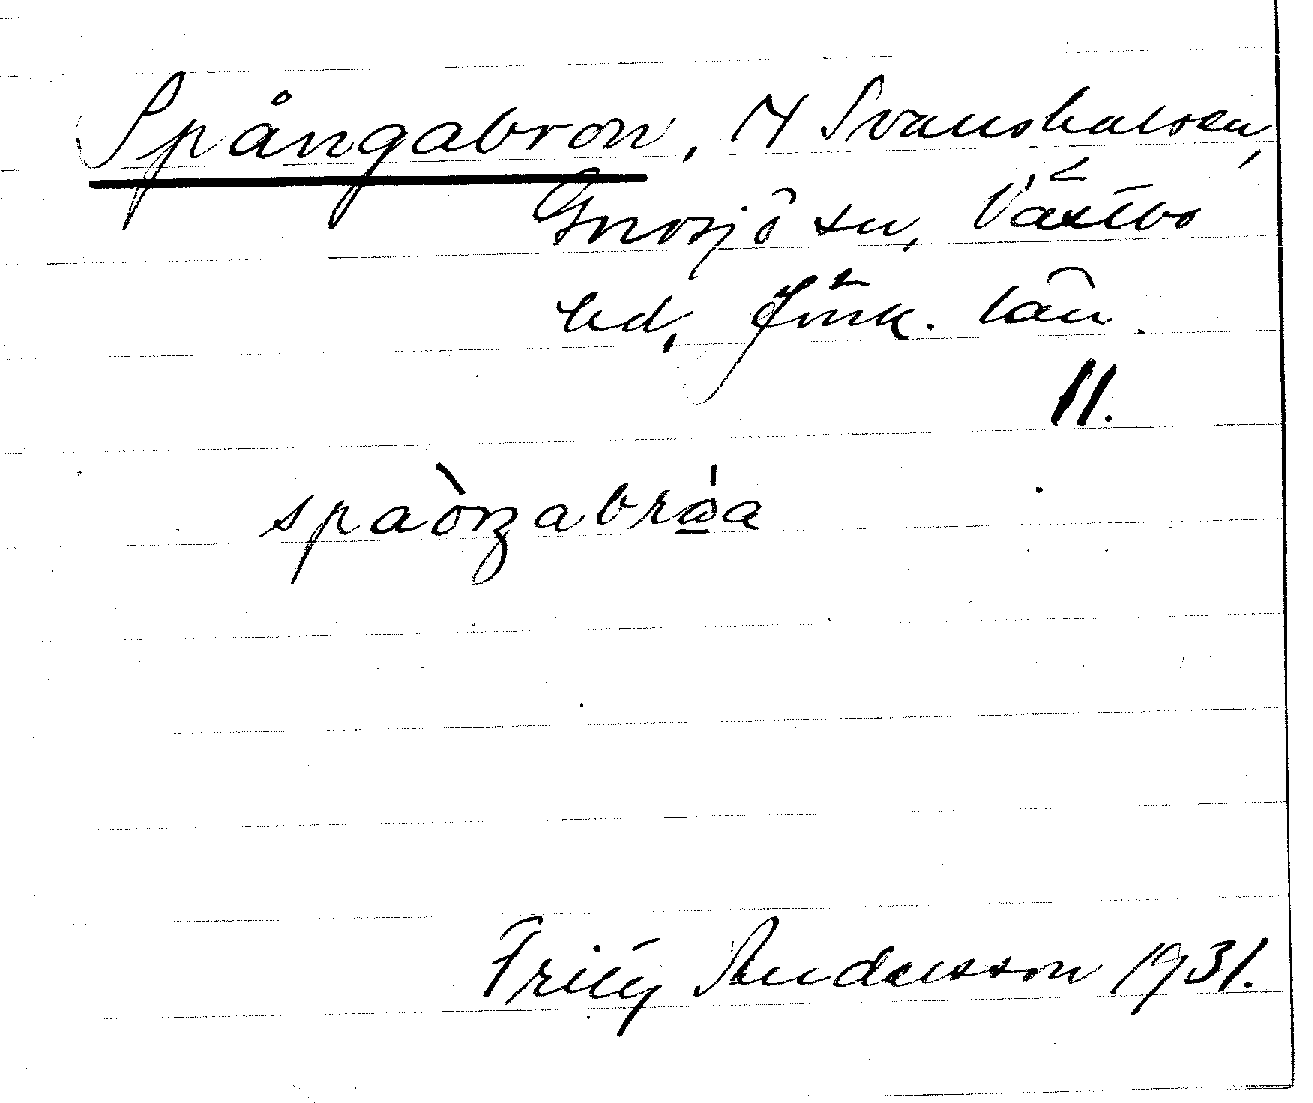 Spångabron, N Svanshalsen,
Gnosjö sn, Västbo
hd, Jönk. län.
11.
spaòŋabrǿa
Fritz Andersson 1931.